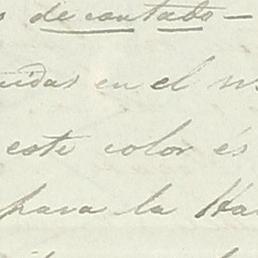 de contado —
en el
este color és
para la